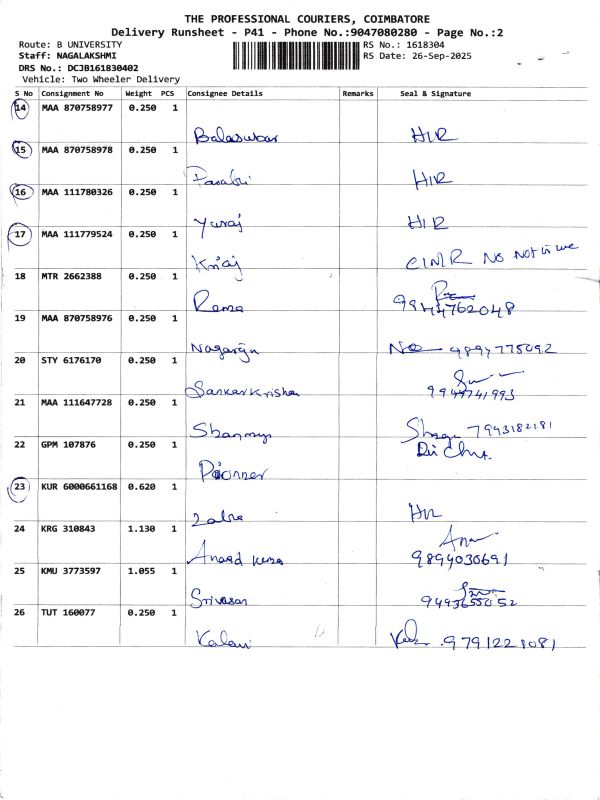 THE PROFESSIONAL COURIERS, COIMBATORE
Delivery Runsheet - P41 - Phone No.:9047080280 - Page No.:2
Route: B UNIVERSITY
RS No.: 1618304
Staff: NAGALAKSHMI
RS Date: 26-Sep-2025
DRS No.: DCJB161830402
Vehicle: Two Wheeler Delivery
S No Consignment No Weight PCS Consignee Details Remarks Seal & Signature
14 MAA 870758977 0.250 1
HIR
15 MAA 870758978 0.250 1
HIR
16 MAA 111780326 0.250 1
Yuraj HIR
17 MAA 111779524 0.250 1
No Not in
18 MTR 2662388 0.250 1
Rema 9944762048
19 MAA 870758976 0.250 1
20 STY 6176170 0.250 1
Sankar Krishna 9944741993
21 MAA 111647728 0.250 1
7943182181
22 GPM 107876 0.250 1
23 KUR 6000661168 0.620 1
24 KRG 310843 1.130 1
Anand 9894030691
25 KMU 3773597 1.055 1
Srivasan 9493655052
26 TUT 160077 0.250 1
Kalai 9791221081